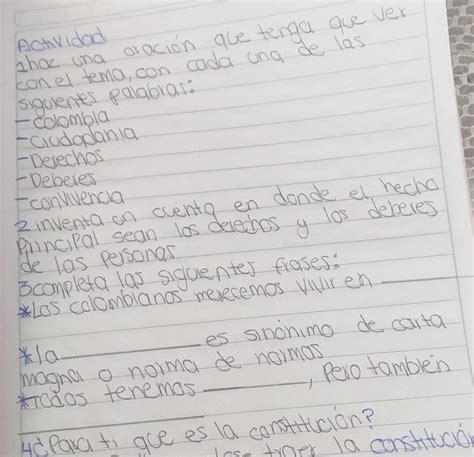 Actividad
1haz una oración que tenga que ver
con el tema, con cada una de las
siguientes palabras:
-colombia
-Ciudadania
-Derechos
-Deberes
-convivencia
2inventa un cuento en donde el hecho
principal sean los derechos y los deberes
de las personas
3completa las siguientes frases:
*Los colombianos merecemos vivir en ________
*la ________ es sinónimo de carta
magna o norma de normas
*Todos tenemos ________, pero también
________
4¿Para ti que es la constitución?
la constitución